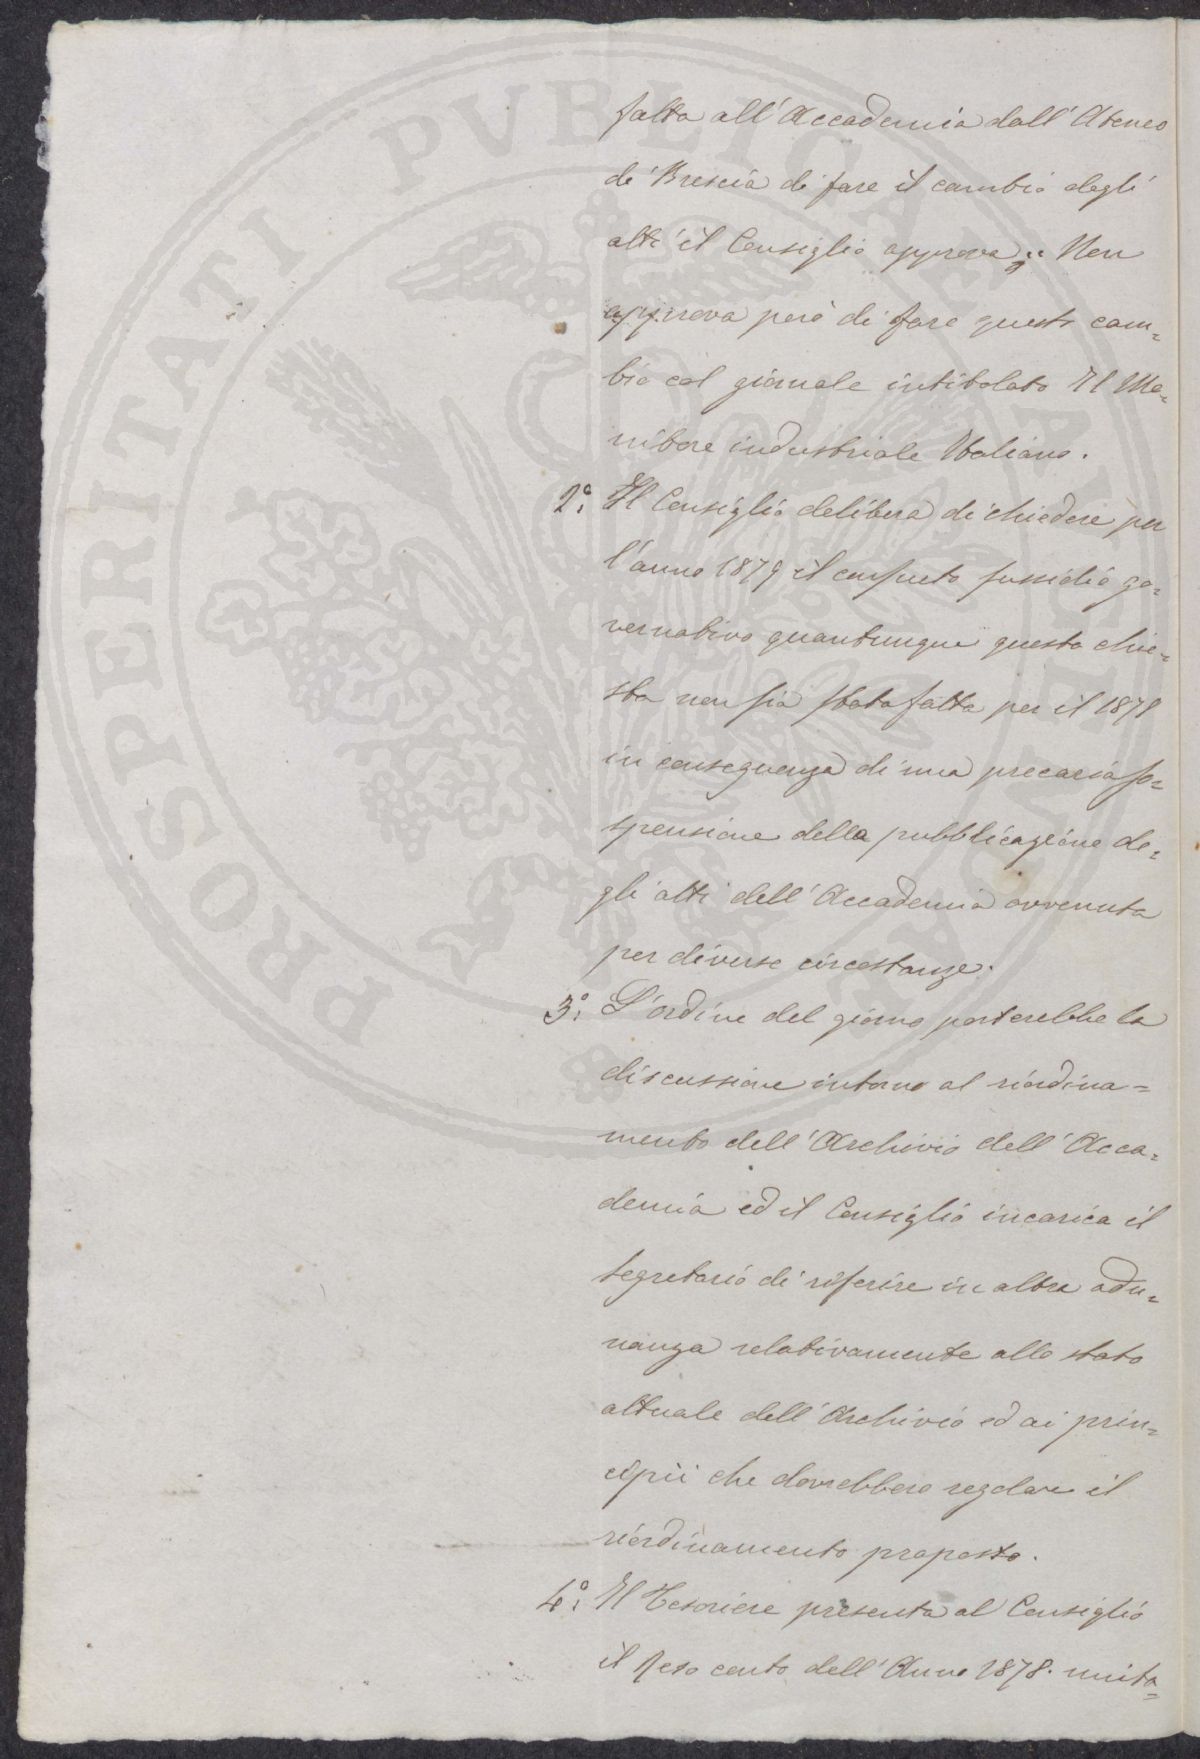 PROSPERITATI PVBLICAE AVGENDAE
fatta all'Accademia dall'Ateneo
di Brescia di fare il cambio degli
atti il Consiglio approva; Non
approva però di fare questo cam=
bio col giornale intitolato Il Mo=
nitore industriale Italiano.
2°: Il Consiglio delibera di chiedere per
l'anno 1879 il consueto sussidio go=
vernativo quantunque questa chie=
sta non sia stata fatta per il 1878
in conseguenza di una precaria so=
spensione della pubblicazione de=
gli atti dell'Accademia avvenuta
per diverse circostanze.
3°: L'ordine del giorno porterebbe la
discussione intorno al riordina=
mento dell'Archivio dell'Acca=
demia ed il Consiglio incarica il
segretario di riferire in altra adu=
nanza relativamente allo stato
attuale dell'Archivio ed ai prin=
cipii che dovrebbero regolare il
riordinamento proposto.
4°: Il Tesoriere presenta al Consiglio
il reso conto dell'Anno 1878. unita=